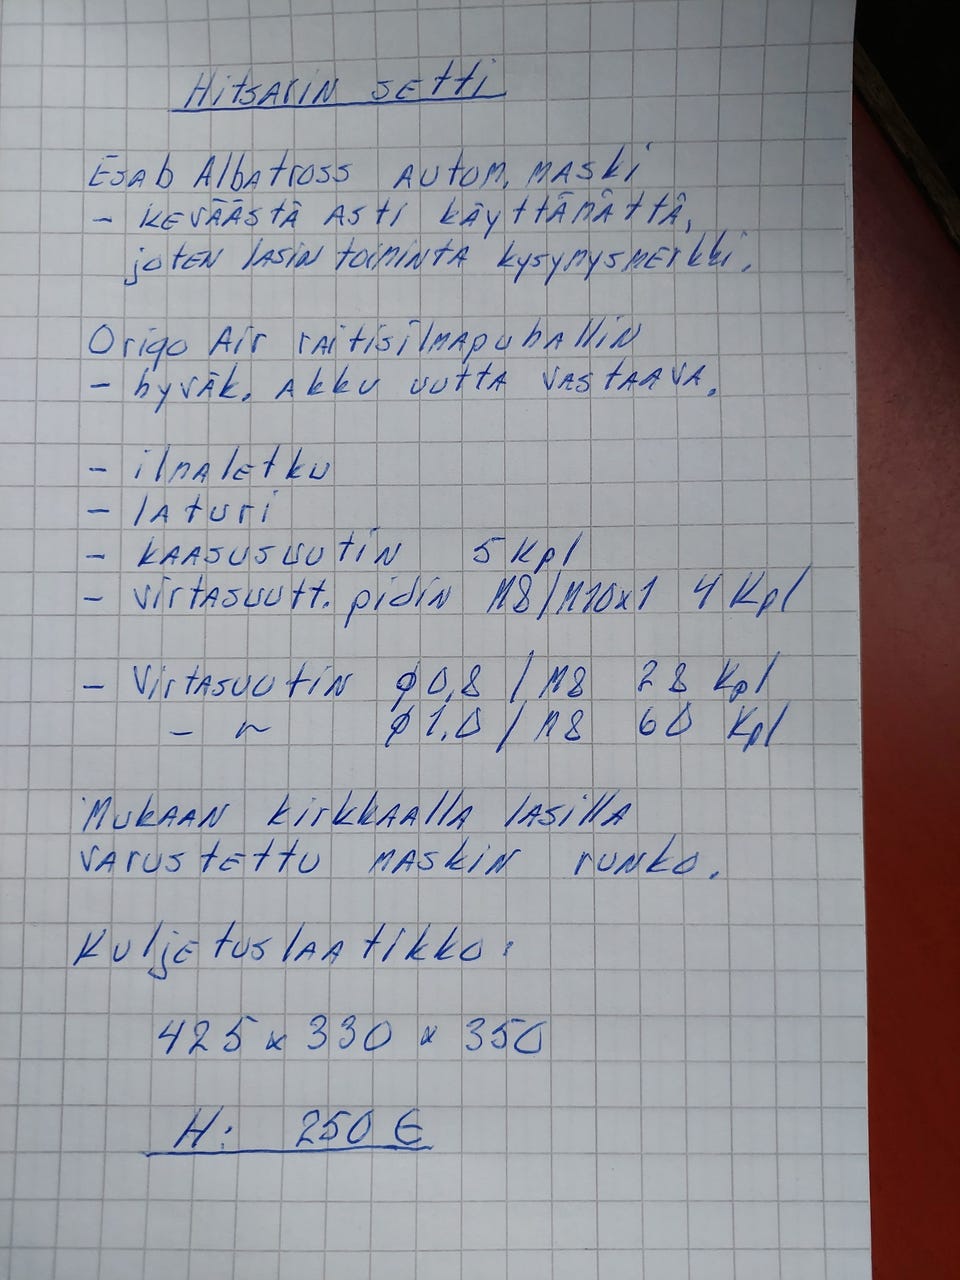 Hitsarin setti
Esab Albatross autom. maski
- keväästä asti käyttämättä,
joten lasin toiminta kysymysmerkki.
Origo Air raitisilmapuhallin
- hyväk. akku uutta vastaava.
- ilmaletku
- laturi
- kaasusuutin 5 kpl
- virtasuutt. pidin M8/M10x1 4 kpl
- Virtasuutin ϕ0,8 / M8 28 kpl
- ~ ϕ1,0 / M8 60 kpl
Mukaan kirkkaalla lasilla
varustettu maskin runko.
Kuljetuslaatikko:
425 x 330 x 350
H: 250 €